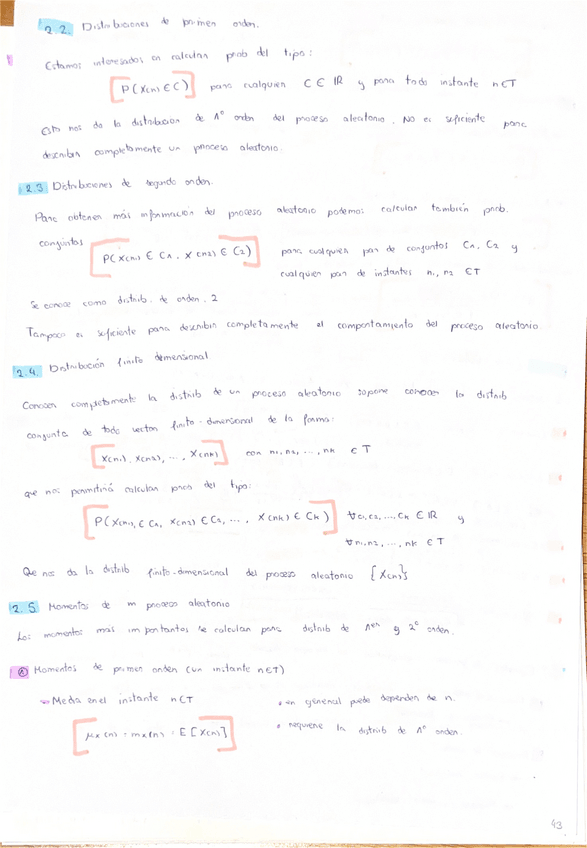 2.2. Distribuciones de primen orden.
Estamos interesados en calculan prob del tipo:
P(X(n) ∈ C) para cualquien C ∈ IR y para todo instante n ∈ T
Esto nos da la distribucion de 1º orden del proceso aleatorio. No es suficiente para
describin completamente un proceso aleatorio.
2.3 Distribuciones de segundo orden.
Para obtenen más información del proceso aleatorio podemos calcular también prob.
conjuntas P(X(n1) ∈ C1, X(n2) ∈ C2) para cualquien par de conjuntos C1, C2 y
cualquien par de instantes n1, n2 ∈ T
Se conoce como distrib. de orden 2
Tampoco es suficiente para describin completamente el comportamiento del proceso aleatorio
2.4. Distribución finito dimensional
Conocen completamente la distrib de un proceso aleatorio supone conocer la distrib
conjunta de todo vector finito-dimensional de la forma:
X(n1), X(n2), ..., X(nk) con n1, n2, ..., nk ∈ T
que nos permitirá calculan prob del tipo:
P(X(n1) ∈ C1, X(n2) ∈ C2, ..., X(nk) ∈ Ck) ∀ C1, C2, ..., Ck ∈ IR y
∀ n1, n2, ..., nk ∈ T
Que nos da la distrib finito-dimensional del proceso aleatorio {X(n)}
2.5. Momentos de un proceso aleatorio
Los momentos más importantes se calculan para distrib de 1er y 2º orden.
Momentos de primen orden (un instante n∈T)
Media en el instante n∈T • en general puede dependen de n.
μx(n) = mx(n) = E[X(n)] • requiere la distrib de 1º orden.
43